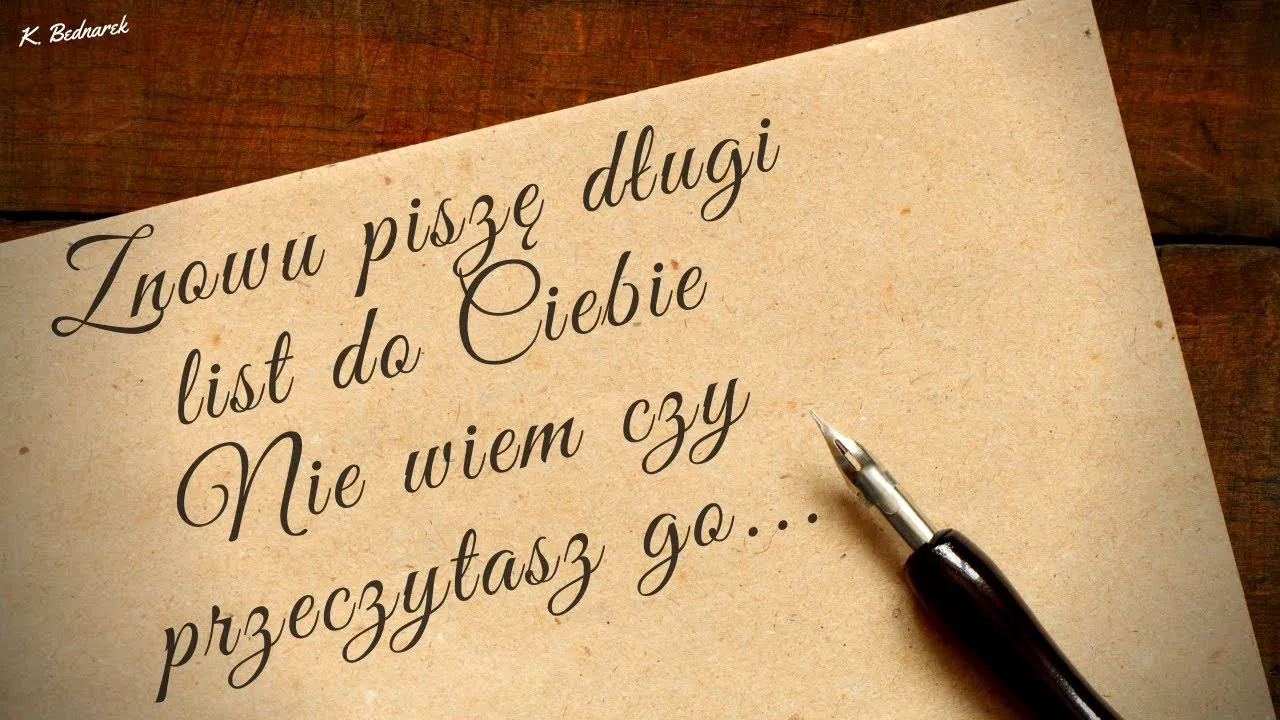 K. Bednarek
Znowu piszę długi
list do Ciebie
Nie wiem czy
przeczytasz go...